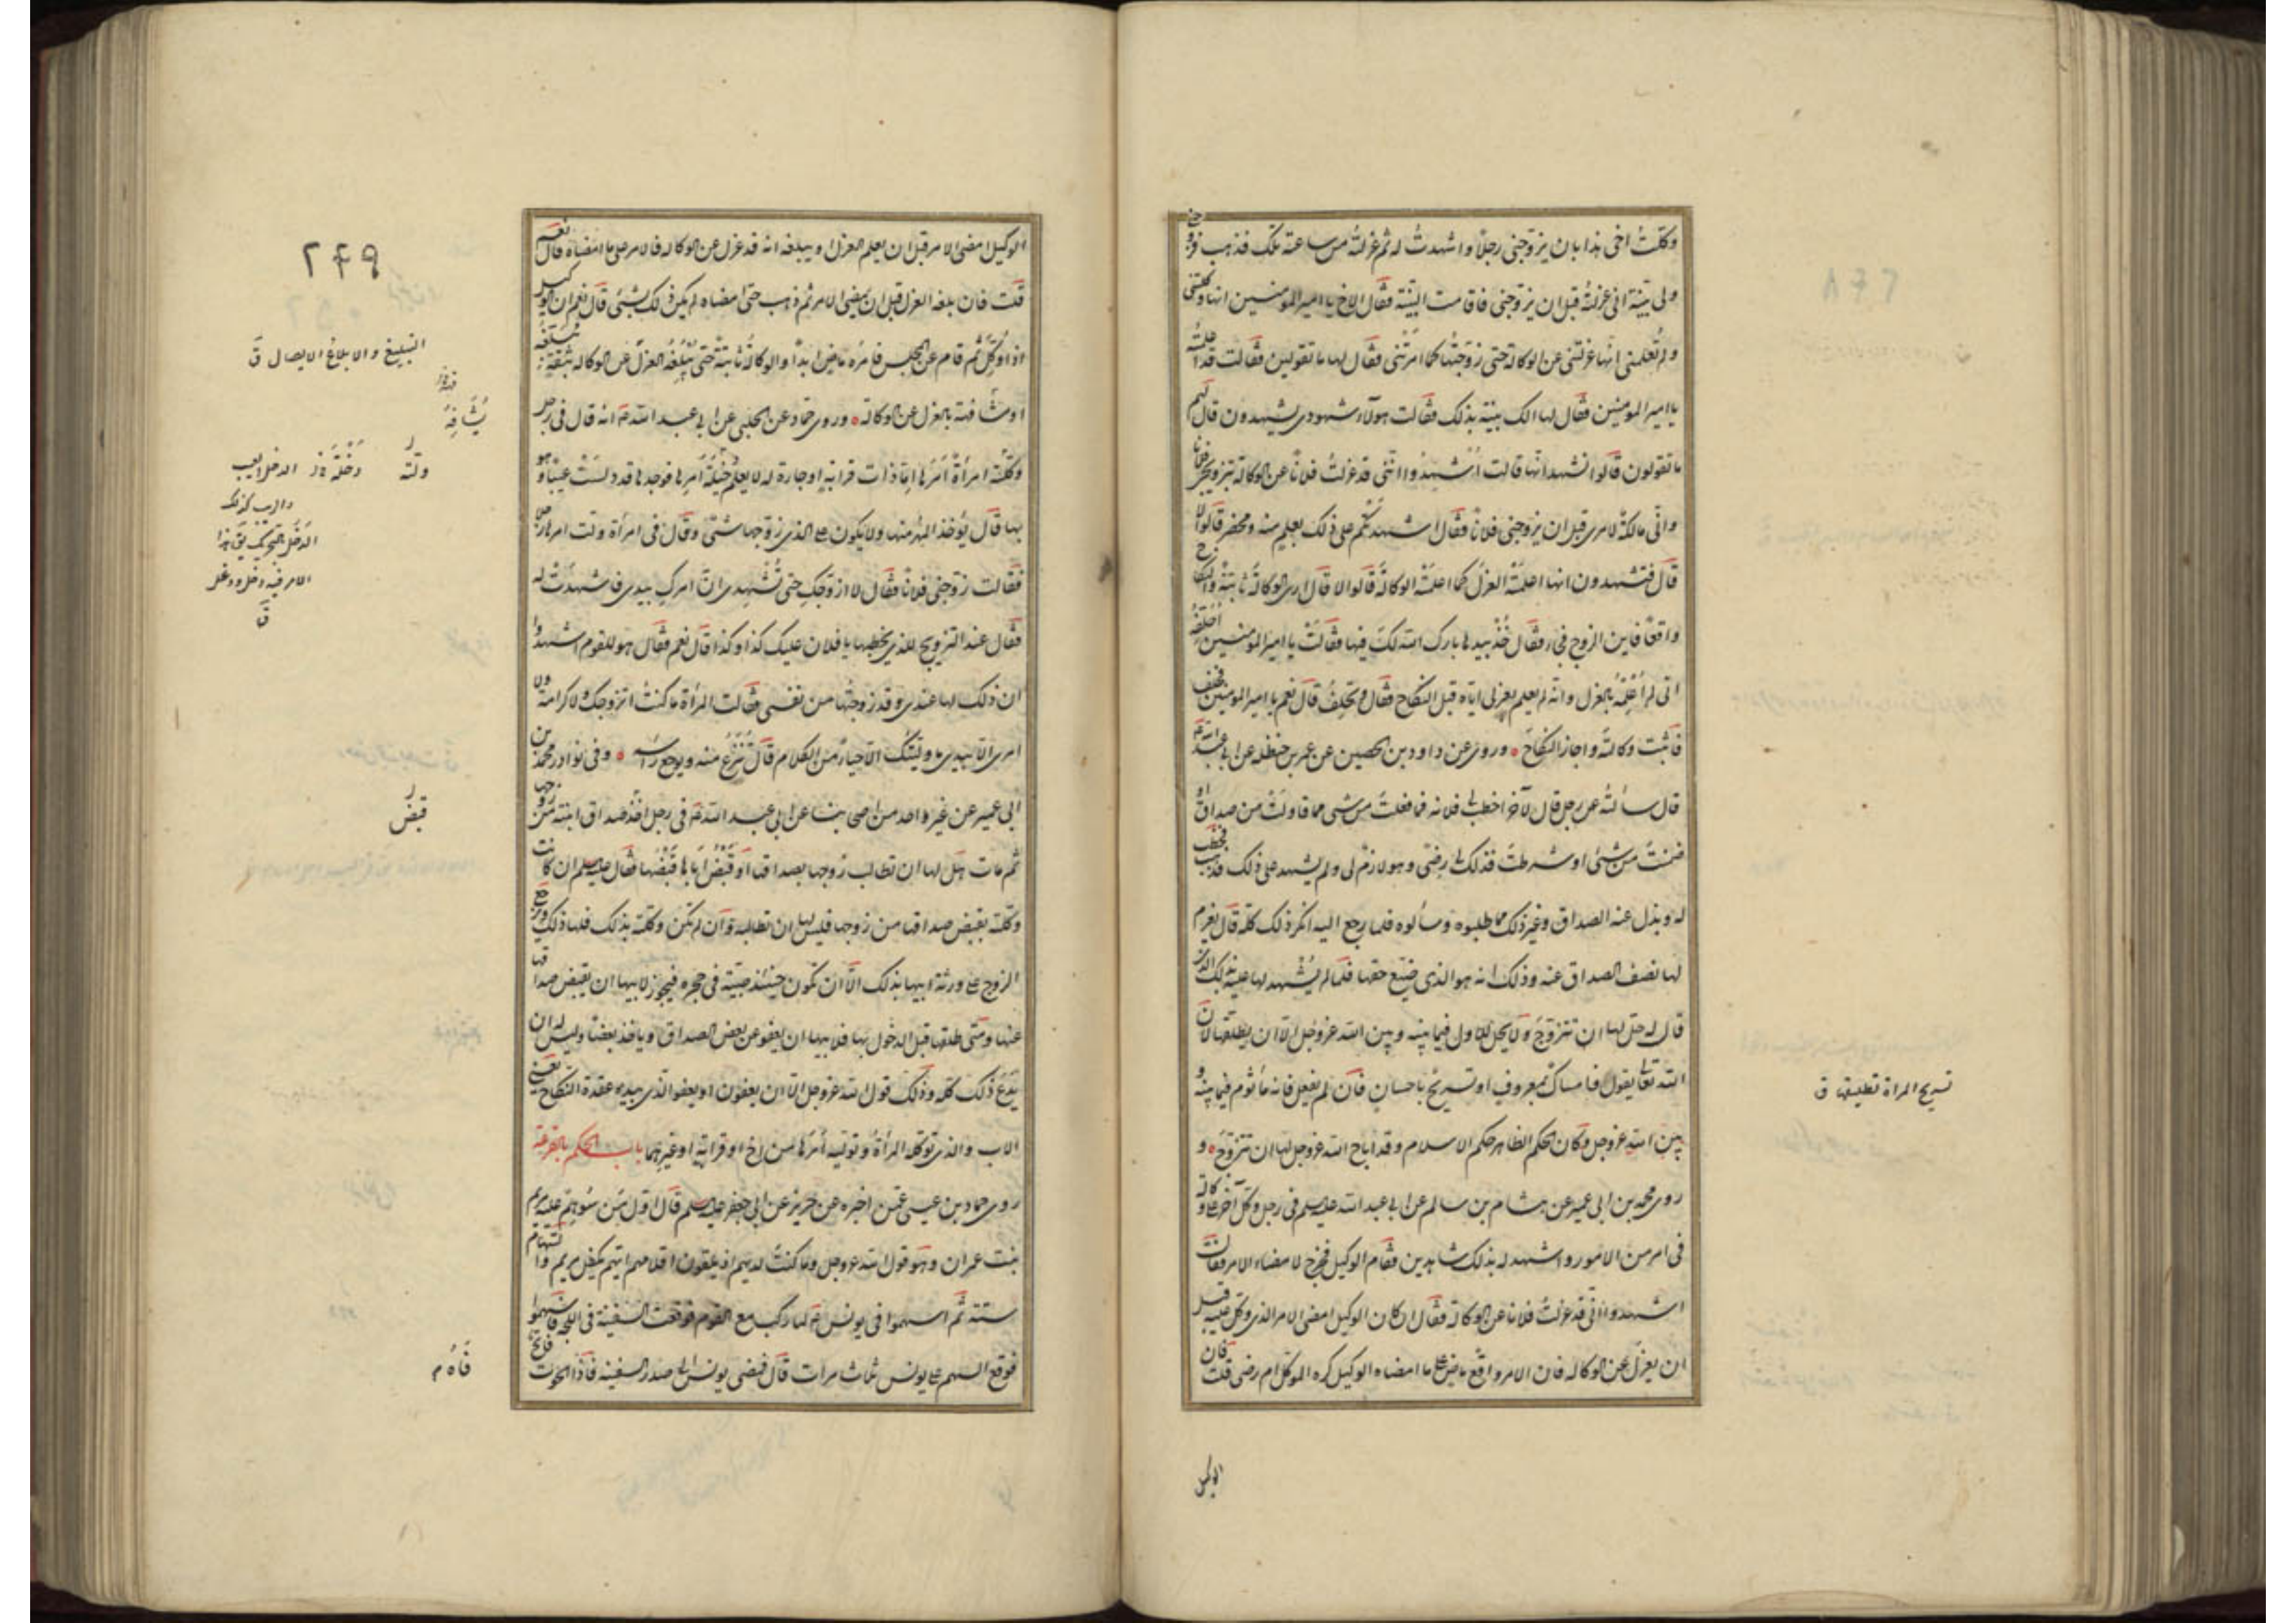 وكلت اخى هذا بان يزوجنى رجلا واشهدت له ثم عزلته من ساعته تلك فذهب فزوجنى
ولى بينة انى عزلته قبل ان يزوجنى فاقامت البينة فقال الاخ يا امير المومنين انها وكلتنى
ولم تعلمنى انها عزلتنى عن الوكالة حتى زوجتها كما امرتنى فقال لها ما تقولين فقالت قد اعلمته
يا امير المومنين فقال لها الك بينة بذلك فقالت هولاء شهودى يشهدون قال لهم
ما تقولون قالوا نشهد انها قالت اشهدوا اننى قد عزلت فلانا عن الوكالة بتزويجى فلانا
وانى مالكة لامرى قبل ان يزوجنى فلانا فقال اشهدتكم على ذلك بعلم منه ومحضر قالوا لا
قال فتشهدون انها اعلمته العزل كما اعلمته الوكالة قالوا لا قال ارى الوكالة ثابتة والنكاح
واقعا فاين الزوج فجاء فقال خذ بيدها بارك الله لك فيها فقالت يا امير المومنين احلفه
انى لم اعلمه بالعزل وانه لم يعلم بعزلى اياه قبل النكاح فقال وتحلف قال نعم يا امير المومنين فحلف
فاثبت وكالته واجاز النكاح وروى عن داود بن الحصين عن عمر بن حنظلة عن ابى عبد الله ع
قال سالته عن رجل قال لآخر اخطب لى فلانة فما فعلت من شى مما قاولت من صداق او
ضمنت من شئ او شرطت فذلك لى رضى وهو لازم لى ولم يشهد على ذلك فذهب فخطب
له وبذل عنه الصداق وغير ذلك مما طلبوه وسالوه فلما رجع اليه انكر ذلك كله قال يغرم
لها نصف الصداق عنه وذلك انه هو الذى ضيع حقها فلما لم يشهد لها عليه بذلك الذى
قال له حل لها ان تتزوج ولا يحل للاول فيما بينه وبين الله عز وجل الا ان يطلقها لان
الله تعالى يقول فامساك بمعروف او تسريح باحسان فان لم يفعل فانه ماثوم فيما بينه و
بين الله عز وجل وكان الحكم الظاهر حكم الاسلام وقد اباح الله عز وجل لها ان تتزوج و
روى محمد بن ابى عمير عن هشام بن سالم عن ابى عبد الله عليه السلم فى رجل وكل آخر على وكالة
فى امر من الامور واشهد له بذلك شاهدين فقام الوكيل فخرج لامضاء الامر فقال
اشهدوا انى قد عزلت فلانا عن الوكالة فقال ان كان الوكيل امضى الامر الذى وكل عليه قبل
ان يعزل عن الوكالة فان الامر واقع ماض على ما امضاه الوكيل كره الموكل ام رضى قلت فان
الوكيل
تسريح المراة تطليقها ق
الوكيل امضى الامر قبل ان يعلم العزل او يبلغه انه قد عزل عن الوكالة فالامر على ما امضاه قال نعم
قلت فان بلغه العزل قبل ان يمضى الامر ثم ذهب حتى امضاه لم يكن ذلك بشئ قال نعم ان الوكيل
اذا وكل ثم قام عن المجلس فامره ماض ابدا والوكالة ثابتة حتى يبلغه العزل عن الوكالة بثقة يبلغه
او يشافهه بالعزل عن الوكالة وروى حماد عن الحلبى عن ابى عبد الله ع انه قال فى رجل
وكلته امراة امرها اما ذات قرابة او جارة له لا يعلم دخيلة امرها فوجدها قد دلست عيبا هو
بها قال يؤخذ المهر منها ولا يكون على الذى زوجها شئ وقال فى امراة ولت امرها رجلا
فقالت زوجنى فلانا فقال لا ازوجك حتى تشهدى ان امرك بيدى فاشهدت له
فقال عند التزويج للذى يخطبها يا فلان عليك كذا وكذا قال نعم فقال هو للقوم اشهدوا
ان ذلك لها عندى وقد زوجتها من نفسى فقالت المراة ما كنت اتزوجك ولا كرامة ولا
امرى الا بيدى وما وليتك الا حياء من الكلام قال تنزع منه ويوجع راسه وفى نوادر محمد بن
ابى عمير عن غير واحد من اصحابنا عن ابى عبد الله ع فى رجل قبض صداق ابنته من زوجها
ثم مات هل لها ان تطالب زوجها بصداقها او قبض ابيها قبضها فقال عليه السلم ان كانت
وكلته بقبض صداقها من زوجها فليس لها ان تطالبه وان لم تكن وكلته بذلك فلها ذلك ويرجع
الزوج على ورثة ابيها بذلك الا ان تكون حينئذ صبية فى حجره فيجوز لابيها ان يقبض صداقها
عنها ومتى طلقها قبل الدخول بها فلابيها ان يعفو عن بعض الصداق وياخذ بعضا وليس له ان
يدع ذلك كله وذلك قول الله عز وجل الا ان يعفون او يعفو الذى بيده عقدة النكاح يعنى
الاب والذى توكله المراة وتوليه امرها من اخ او قرابة او غيرهما باب الحكم بالقرعة
روى حماد بن عيسى عمن اخبره عن حريز عن ابى جعفر عليه السلم قال اول من سوهم عليه مريم
بنت عمران وهو قول الله عز وجل وما كنت لديهم اذ يلقون اقلامهم ايهم يكفل مريم والسهام
ستة ثم استهموا فى يونس ع لما ركب مع القوم فوقفت السفينة فى اللجة فاستهموا
فوقع السهم على يونس ثلاث مرات قال فمضى يونس الى صدر السفينة فاذا الحوت فاتح
٢٤٩
التبليغ والابلاغ الايصال ق
يشافه
ولته
قبض
فاه م